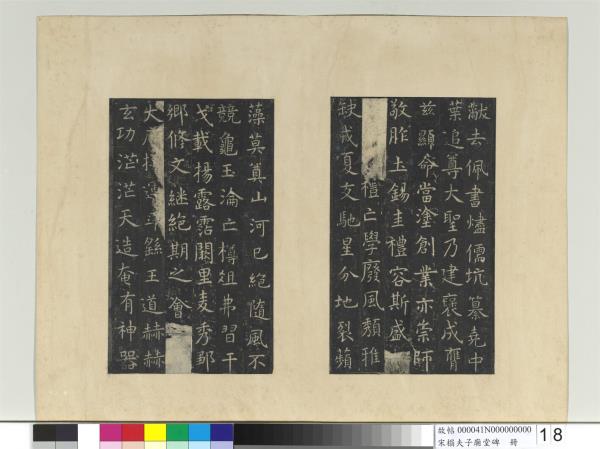 黻去佩書燼儒坑纂堯中
葉追尊大聖乃建褒成膺
茲顯命當塗創業亦崇師
敬胙土錫圭禮容斯盛
禮亡學廢風頹雅
缺戎夏交馳星分地裂蘋
藻莫奠山河已絕隨風不
競龜玉淪亡樽俎弗習干
戈載揚露霑闕里麥秀鄒
鄉修文繼絕期之會
大繇王道赫赫
玄功茫茫天造奄有神器
故帖 000041N000000000
宋搨夫子廟堂碑 冊
18